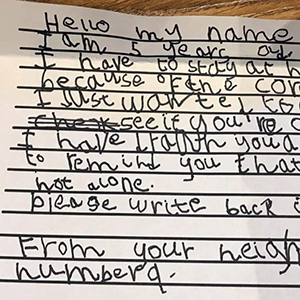 Hello my name
I am 5 years
I have to stay at h
because of the cor
I just wanted to
see if you're o
I have you a
to remind you that
not alone.
please write back i
From your neigh
number 9.